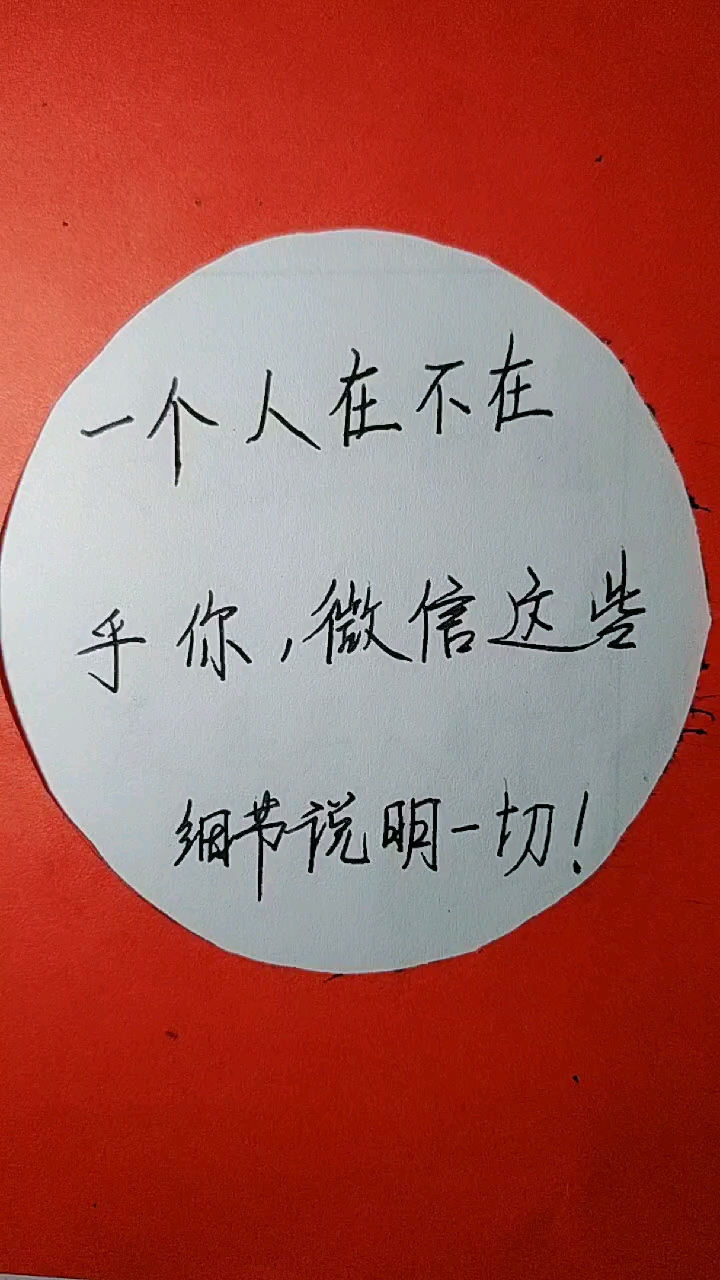 一个人在不在
乎你,微信这些
细节说明一切!